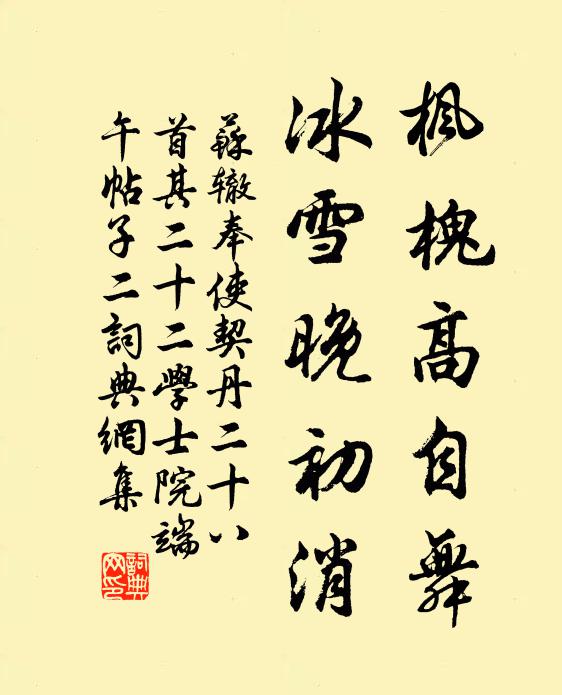 枫槐高自舞
冰雪晚初消
蘇辙奉使契丹二十八
首其二十二學士院端
午帖子二詞典網集
詞典网印